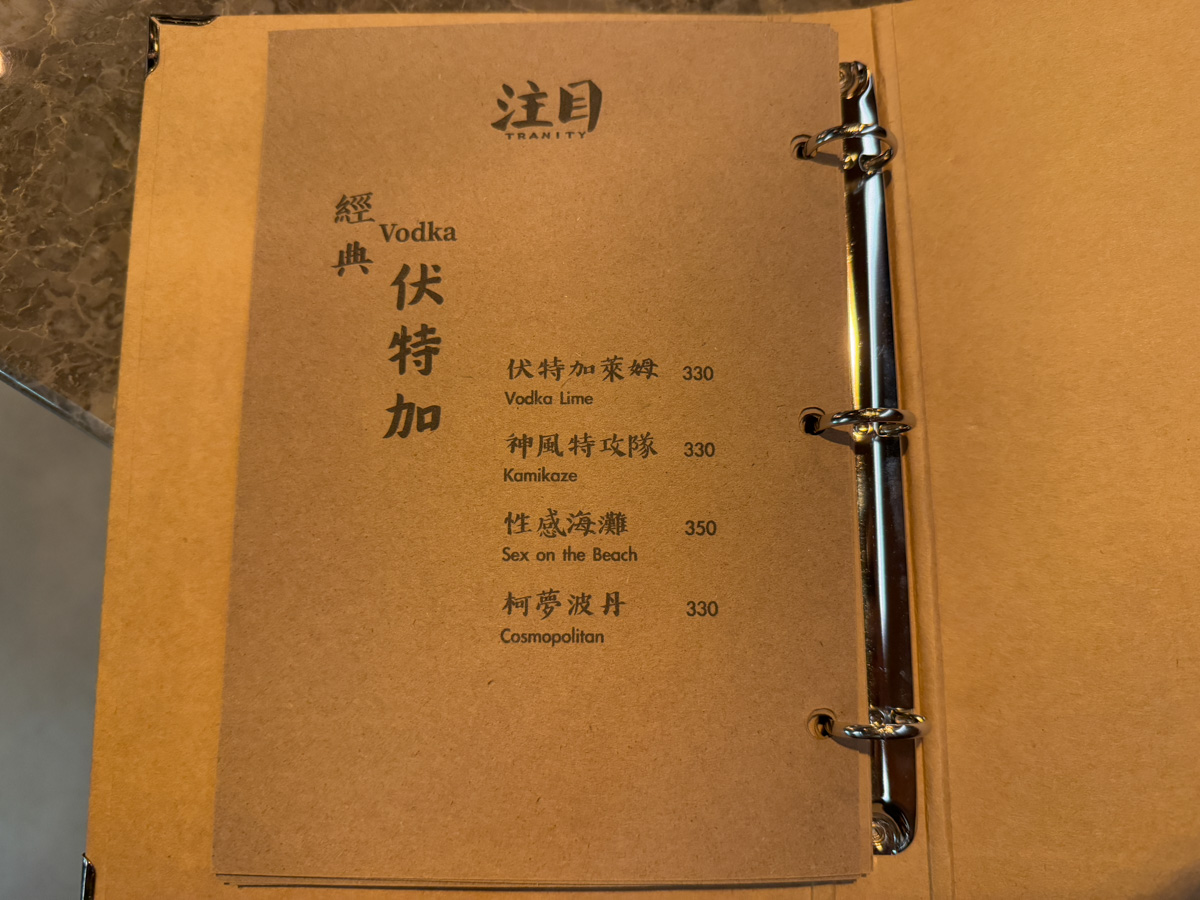 注目
TRANITY
經典
Vodka
伏特加
伏特加萊姆 330
Vodka Lime
神風特攻隊 330
Kamikaze
性感海灘 350
Sex on the Beach
柯夢波丹 330
Cosmopolitan